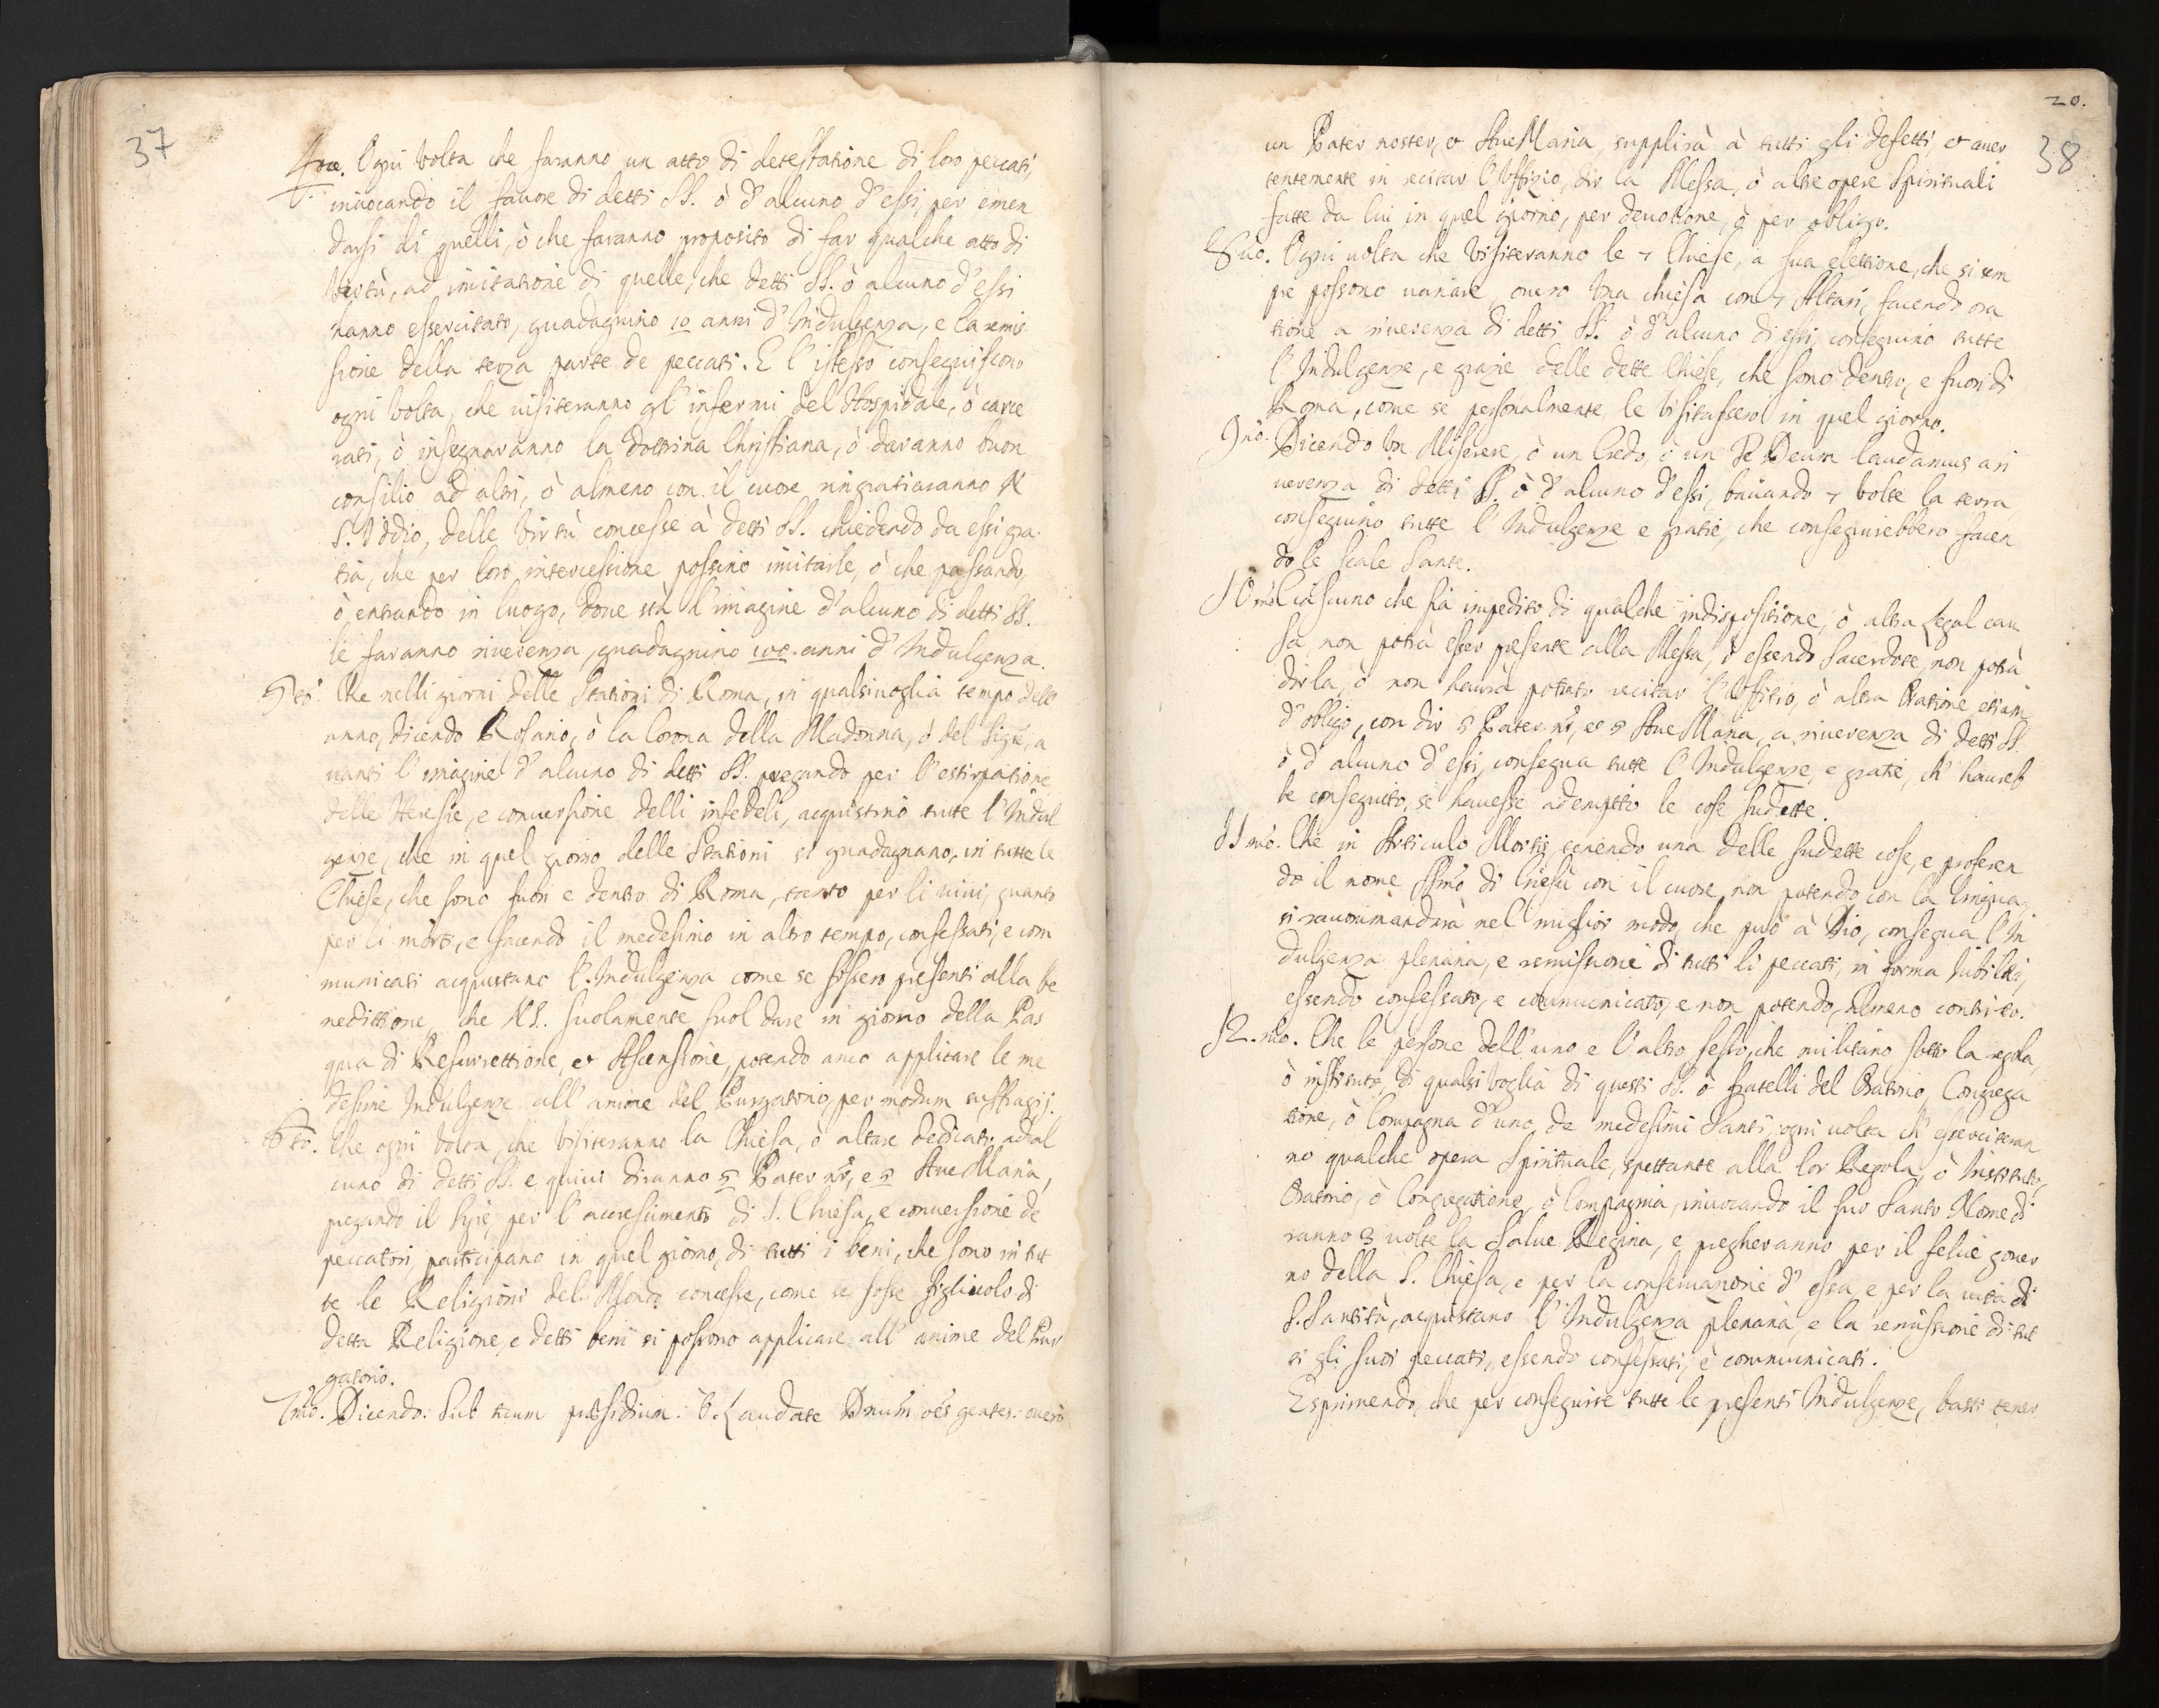 37
4to. Ogni volta che faranno un atto di detestatione di loro peccati,
invocando il favore di detti SS. ò d'alcuno d'essi, per emen
darsi di quelli, ò che faranno proposito di far qualche atto di
Virtù, ad imitatione di quelle, che detti SS. ò alcuno d'essi
hanno essercitato, guadagnino 10 anni d'Indulgenza, e la remis
sione della terza parte de peccati. E l'istesso conseguiscono
ogni volta, che visiteranno gl'infermi del Hospidale, ò carce
rati, ò insegnaranno la dottrina Christiana, ò daranno buon
consilio ad altri, ò almeno con il cuore ringratiaranno N
S. Iddio, delle Virtù concesse à detti SS. chiedendo da essi gra
tia, che per loro intercessione possino imitarle, ò che passando,
ò entrando in luogo, dove stà l'imagine d'alcuno di detti SS.
le faranno riverenza, guadagnino 100. anni d'Indulgenza.
5to. Che nelli giorni delle Stationi di Roma, in qualsivoglia tempo dell
anno, dicendo Rosario, ò la Corona della Madonna, ò del Sigre, a
vanti l'imagine d'alcuno di detti SS. pregando per l'estirpatione
delle Heresie, e conversione delli infedeli, acquistino tutte l'Indul
genze, che in quel giorno delle Stationi si guadagnano, in tutte le
Chiese, che sono fuori e dentro di Roma, tanto per li vivi, quanto
per li morti, e facendo il medesimo in altro tempo, confessati, e com
municati acquistano l'Indulgenza come se fossero presenti alla be
nedittione, che NS. suolamente suol dare in giorno della Pas
qua di Resurrettione, et Ascensione, potendo anco applicare le me
desime Indulgenze all'anime del Purgatorio, per modum suffragij.
6to. Che ogni volta, che visiteranno la Chiesa, ò altare dedicato, ad al
cuno di detti SS. e quivi diranno 5 Pater nr, e 5 Ave Maria,
pregando il Sigre, per l'accrescimento di S. Chiesa, e conversione de
peccatori, participano in quel giorno, di tutti i beni, che sono in tut
te le Religioni del Mondo concesse, come se fosse figliuolo di
detta Religione, e detti beni si possono applicare all'anime del Pur
gatorio.
7mo. Dicendo: Sub tuum præsidium: ò. Laudate Dnum oes gentes: overo
20.
38
un Pater noster, et Ave Maria, supplirà à tutti gli defetti, et aver
tentemente in recitar l'Uffizio, dir la Messa, ò altre opere Spirituali
fatte da lui in quel giorno, per devotione, ò per obligo.
8vo. Ogni volta che visiteranno le 7 Chiese, a sua elettione, che si sem
pre possono variare overo una chiesa con 7 Altari, facendo ora
tione a riverenza di detti SS. ò d'alcuno di essi, conseguino tutte
l'Indulgenze, e grazie delle dette Chiese, che sono dentro, e fuori di
Roma, come se personalmente le visitassero in quel giorno.
9no. Dicendo un Miserere, ò un Credo, ò un Te Deum laudamus a ri
verenza di detti SS. ò d'alcuno d'essi, baciando 7 volte la terra
conseguino tutte l'Indulgenze e gratie, che conseguirebbero facen
do le Scale Sante.
10mo. Ciascuno che sia impedito di qualche indispositione, ò altra Legal cau
sa, non potrà esser presente alla Messa, ò essendo Sacerdote, non potrà
dirla, ò non havrà potuto recitar l'Offitio, ò altra Oratione etiam
d'obligo, con dir 5 Pater nr, et 5 Ave Maria, a riverenza di detti SS.
ò d'alcuno d'essi, consegua tutte l'Indulgenze, e gratie, ch'havreb
be conseguito, se havesse adempito le cose sudette.
11mo. Che in Articulo Mortis, tenendo una delle sudette cose, e proferen
do il nome SSmo di Giesù con il cuore, non potendo con la lingua,
si raccommandarà nel miglior modo, che può à Dio, consegua l'In
dulgenza plenaria, e remissione di tutti li peccati, in forma Jubilei,
essendo confessato, e communicato, e non potendo, almeno contrito.
12.mo. Che le persone dell'uno e l'altro sesso, che militano sotto la regola,
ò instituto, di qualsivoglia di questi SS. ò fratelli del Oratorio, Congrega
tione, ò Compagnia d'uno de medesimi Santi, ogni volta ch'esserciteran
no qualche opera Spirituale, spettante alla lor Regola, ò Instituto,
Oratorio, ò Congregatione, ò Compagnia, invocando il suo Santo Nome di
ranno 3 volte la Salve Regina, e pregheranno per il felice gover
no della S. Chiesa, e per la conservazione d'essa, e per la vita di
S. Santità, acquistano l'Indulgenza plenaria, e la remissione di tut
ti gli suoi peccati, essendo confessati, e communicati.
Esprimendo, che per conseguire tutte le presenti Indulgenze, basti tener